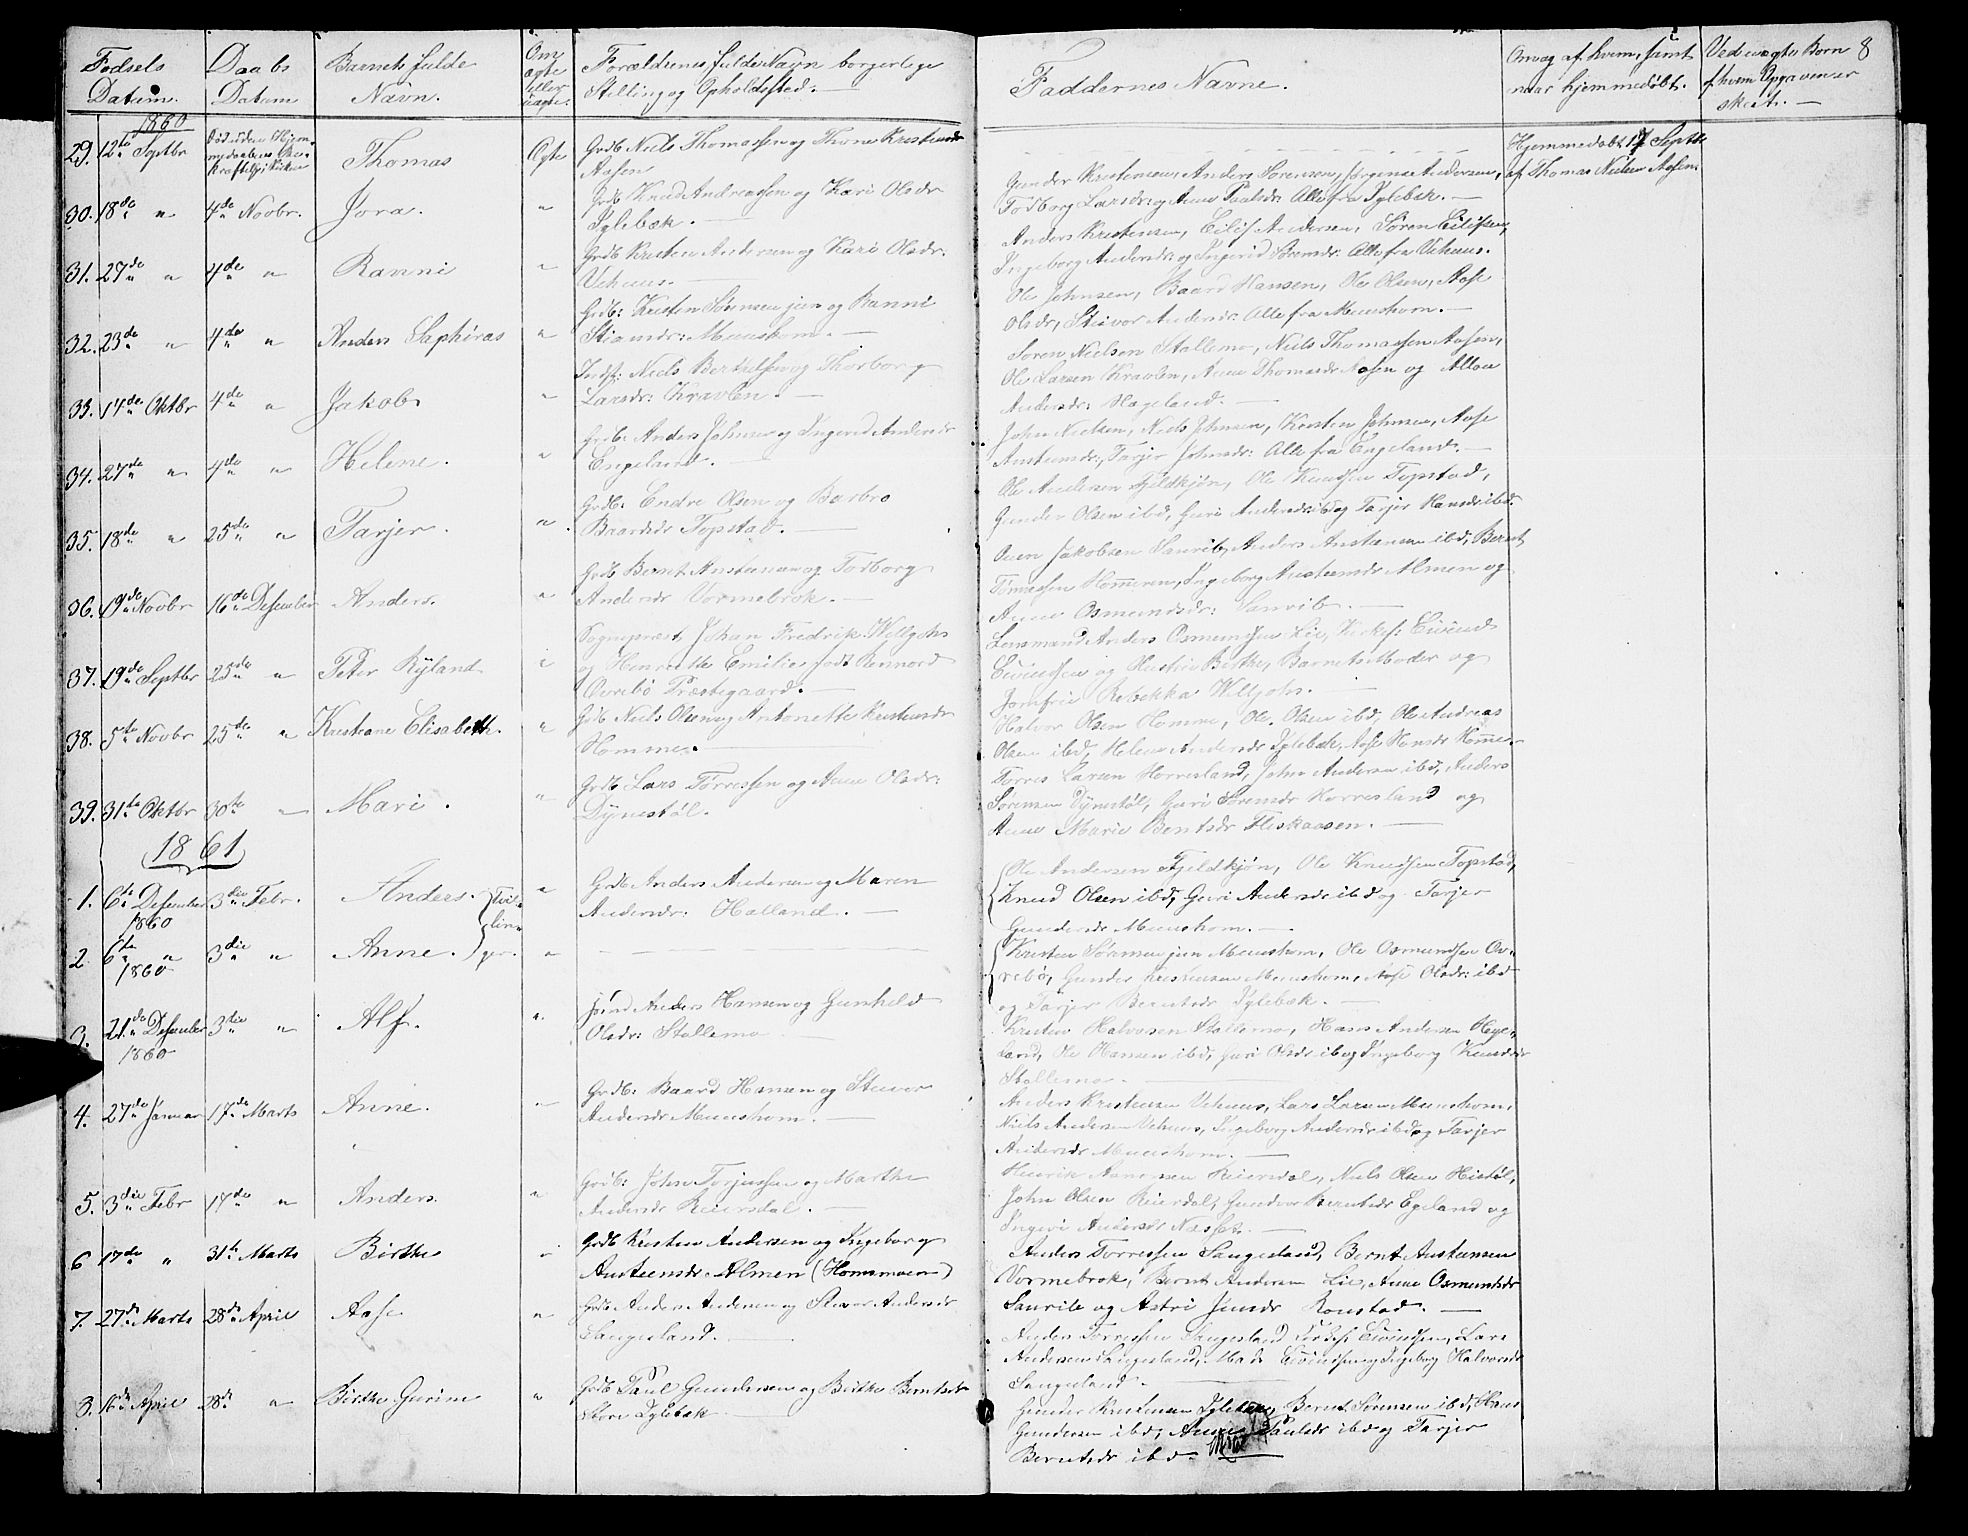 Fødsels Datum.
Daabs Datum
Barnets fulde Navn.
Om ægte eller uægte.
Forældrenes fulde Navn borgerlige Stilling og Opholdssted.
Faddernes Navne.
Omvag af hvem, samt naar hjemmedøbt.
Ved uægte Børn af hvem Opgaven er skeet.
8
1860
29. 12te Septbr
Thomas
Ægte
Grdb Niels Thomassen og Thone Kristensdr
Aasen
Hjemmedøbt 17 Septbr
af Thomas Nielsen Aasen.
30. 18de " 4de Novbr.
Jora.
"
Grdb Knud Andreassen og Kari Olsdr
Iglebæk.
Gunder Kristensen, Anders Sørensen, Jørgen Andersen,
Todborg Larsdr: og Anne Paalsdr: Alle fra Iglebæk.
31. 27de " 4de "
Ranni
"
Grdb Kristen Andersen og Kari Olsdr:
Vehuus.
Anders Kristensen, Eilif Andersen, Søren Eilifsen,
Ingeborg Andersdr: og Ingerid Sørensdr: Alle fra Vehuus.
32. 23de " 4de "
Anders Saphiras
"
Grdb: Kristen Sørensen jun og Ranni
Stiansdr: Muushom.
Ole Johnsen, Baard Hansen, Ole Olsen, Aase
Olsdr, Stivor Andersdr: Alle fra Muushom.
33. 14de Oktbr 4de "
Jakob
"
Indst: Niels Bertelsen og Thorborg
Larsdr: Kravlen.
Søren Nielsen Stallemo, Niels Thomassen Aasen,
Ole Larsen Kravlen, Anne Thomasdr Aasen og
Andersdr: Hageland.
34. 27de " 4de "
Helene.
"
Grdb: Anders Johnsen og Ingerid Andersdr
Engeland.
John Nielsen, Niels Johnsen, Kristen Johnsen, Aase
Austensdr:, Tarjer Johnsdr: Alle fra Engeland.
35. 18de " 25de "
Tarjer.
"
Grdb: Endre Olsen og Barbro
Baardsdr Topstad.
Ole Andersen Fjeldkjøn, Ole Knudsen Topstad,
Gunder Olsen ibd, Guri Andersdr ibd og Tarjer Hansdr ibd.
36. 19de Novbr 16de Desember
Anders.
"
Grdb Bernt Austensen og Todborg
Andersdr Vormebrok.
Jakobsen Saurib, Anders Austensen ibd, Bernt
Tønnessen Hommeren, Ingeborg Austensdr Almen og
Anne Osmundsdr: Saurib.
37. 19de Septbr 25de "
Peter Ryland
Sognepræst Johan Fredrik Wellgohs
og Henriette Emilie født Rennord
Øvrebø Præstegaard.
Lensmand Anders Osmundsen Lie, Kirkes: Eivind
Eivindsen og Hustru Birthe, Barnets Moder og
Jomfru Rebekka Wellgohs.
38. 5te Novbr 25de "
Kristiane Elisabeth.
"
Grdb Niels Olsen og Antonette Kristensdr
Homme.
Halvor Olsen Homme, Ole Olsen ibd, Ole Andreas
Olsen ibd, Helene Andersdr Iglebæk, Aase Hansdr Homme.
39. 31te Oktbr 30te "
Mari.
"
Grdb Lars Torressen og Anne Olsdr:
Dynestøl.
Torres Larsen Horresland, John Andersen ibd, Anders
Sørensen Dynestøl, Guri Sørensdr Horresland og
Anne Marie Berntsdr Fliskaasen.
1861
1. 6te Desember 1860 3die Febr.
Anders.
Tvillinger.
"
Grdb Anders Andersen og Maren
Andersdr: Halland.
Ole Andersen Fjeldkjøn, Ole Knudsen Topstad,
Knud Olsen ibd, Guri Andersdr ibd og Tarjer
Gundersdr Muushom.
2. 6te " 1860 3die "
Anne.
"
Kristen Sørensen jun Muushom, Ole Osmundsen Øv-
rebø, Gunder Kristensen Muushom, Aase Olsdr: ibd
og Tarjer Berntsdr Iglebæk.
3. 21de Desember 1860 3die "
Alf.
"
Anders Hansen og Gunhild
Olsdr: Stallemo
Kristen Halvorsen Stallemo, Hans Andersen Hage-
land, Ole Hansen ibd, Guri Olsdr ib og Ingeborg Knudsdr
Stallemo.
4. 27de Januar 17de Marts
Anne.
"
Grdb: Baard Hansen og Stivor
Andersdr Muushom.
Anders Kristensen Vehuus, Lars Larsen Muushom,
Niels Andersen Vehuus, Ingeborg Andersdr ibd og Tarjer
Andersdr Muushom.
5. 3die Febr 17de "
Anders.
"
Grdb: John Torjussen og Marthe
Andersdr Reiersdal.
Henrik Aanensen Reiersdal, Niels Olsen Histøl,
John Olsen Reiersdal, Gundvor Berntsdr Egeland og
Ingeri Andersdr Næsset.
6 17de " 31te Marts
Birthe
"
Grdb Kristen Andersen og Ingeborg
Austeensdr. Almen (Hommeren)
Anders Torressen Saugesland, Bernt Austensen
Vormebrok, Bernt Andersen Lie, Anne Osmundsdr
Saurib og Astri Jensdr Ronstad.
7. 27de Marts 28de April
Aase
"
Grdb Anders Andersen og Stivor Andersdr
Saugesland.
Anders Torressen Saugesland, Eivindsen, Lars
Andersen Saugesland, Eivindsen og Ingeborg Halvorsdr
Saugesland.
8. 16de April 28de "
Birthe Gurine
"
Grdb Paul Gundersen og Birthe Berntsdr
Store Iglebæk
Gunder Kristensen Iglebæk, Bernt Sørensen ibd, Hans
Gundersen ibd, Anne Paulsdr ibd og Tarjer
Berntsdr ibd.